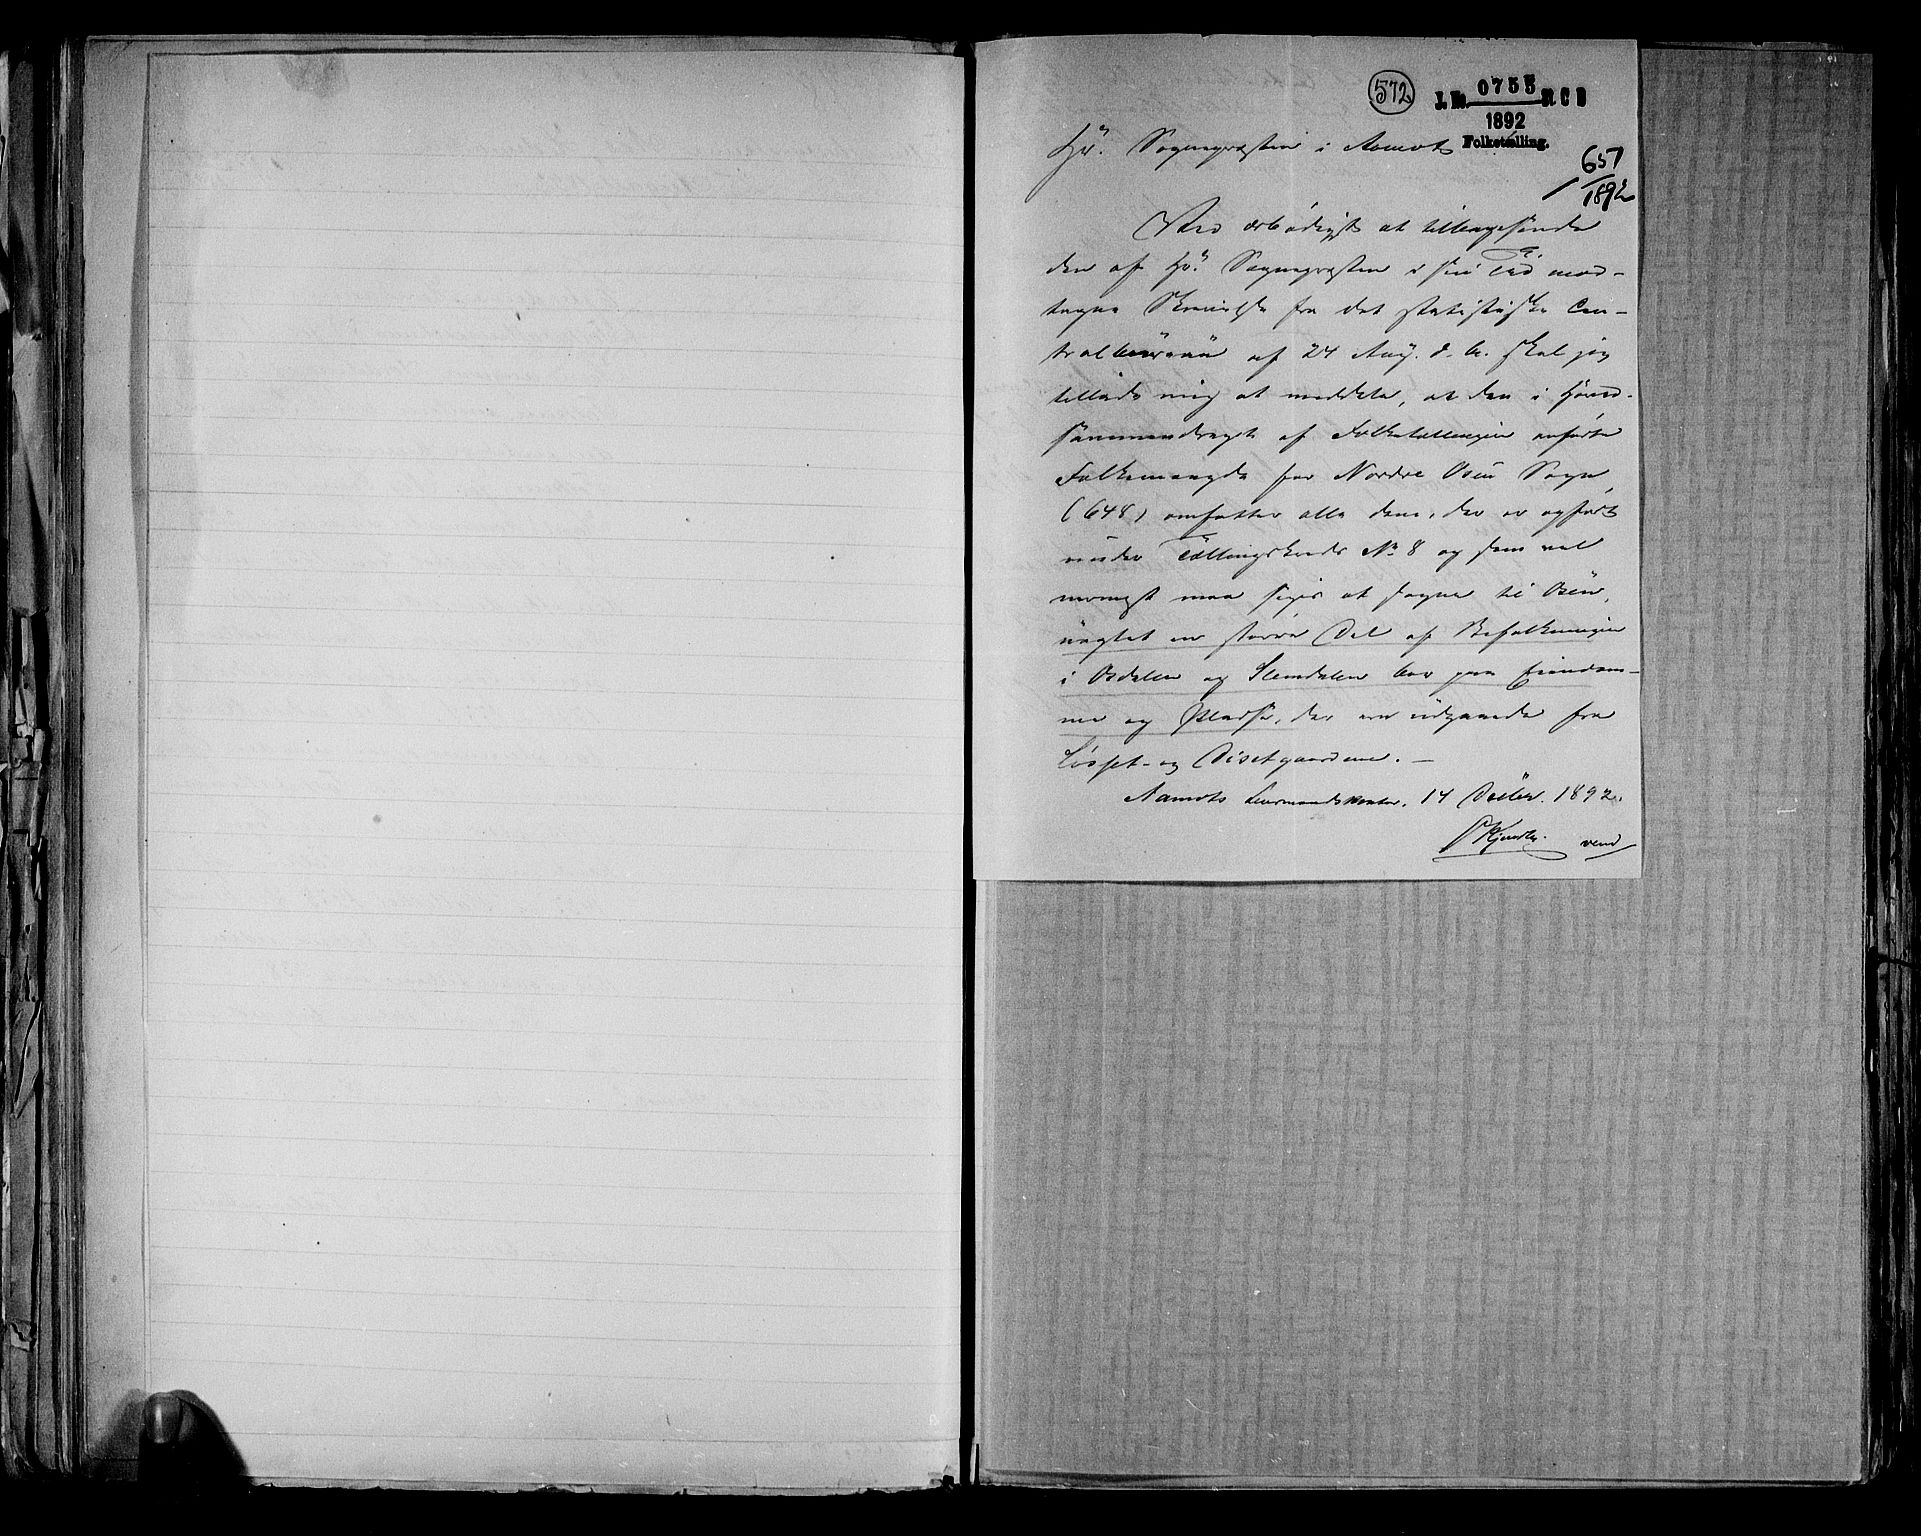 572
J. No. 0755 R C B
1892
Folketælling.
Hr. Sognepræsten i Aamot
657
/1892
Ved ærbødigst at tilbagesende
den af Hr. Sognepræsten i sin Tid mod-
tagne Skrivelse fra det statistiske Cen-
tralbureau af 24 Aug. d. A. skal jeg
tillade mig at meddele, at den i Hoved-
sammendraget af Folketællingen anførte
Folkemængde for Nordre Osen Sogn
(648) omfatter alle dem, der er opført
under Tællingskreds No 8 og som vel
nærmest maa siges at sogne til Osen,
uagtet en større Del af Befolkningen
i Osdalen og Slemdalen bor paa Eiendom-
me og Pladse, der ere udgaaede fra
Løsset- og Disetgaardene. —
Aamots Lensmandskontor, 14 Decbr. 1892.
vend